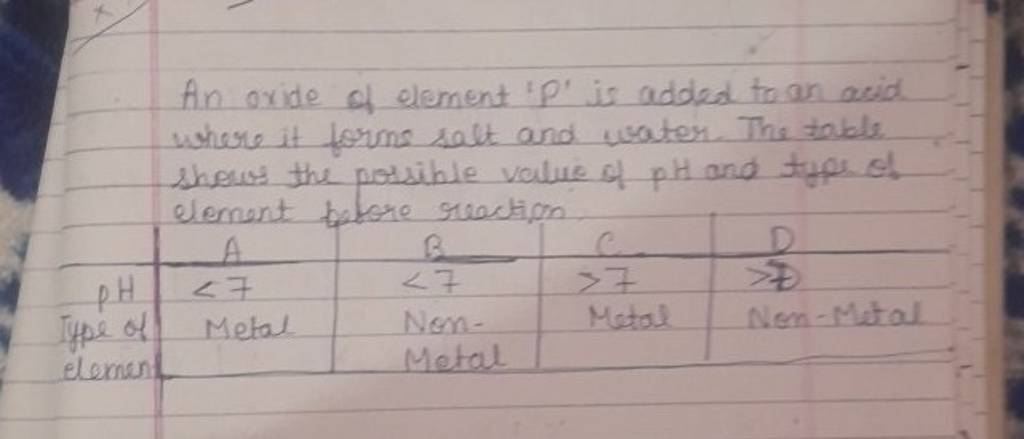 An oxide of element 'P' is added to an acid
where it forms salt and water. The table
shows the possible value of pH and type of
element before reaction.
A B C D
pH <7 <7 >7 >7
Type of Metal Non- Metal Non-Metal
element Metal